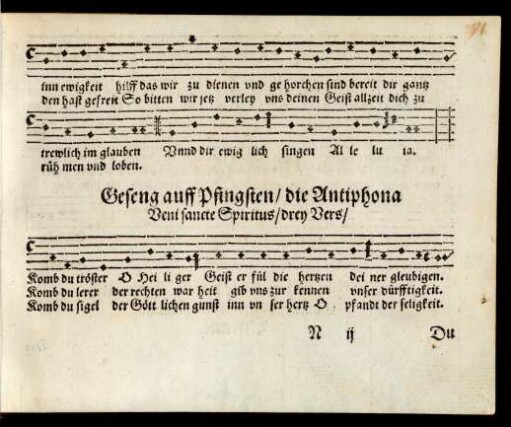 91
inn ewigkeit hilff das wir zu dienen vnd ge horchen sind bereit dir gantz
den hast gefreit So bitten wir jetz verley vns deinen Geist allzeit dich zu
trewlich im glauben Vnnd dir ewig lich singen Al le lu ia.
rüh men vnd loben.
Geseng auff Pfingsten/ die Antiphona
Veni sancte Spiritus/ drey Vers/
Komb du tröster O Hei li ger Geist er fül die hertzen dei ner gleubigen.
Komb du lerer der rechten war heit gib vns zur kennen vnser dürfftigkeit.
Komb du sigel der Gött lichen gunst inn vn ser hertz O pfandt der seligkeit.
N ij Du